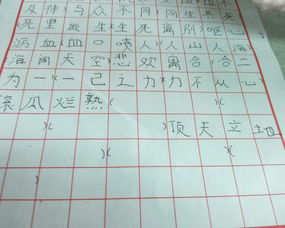 与众不同 同生共死
死里逃生)(生死离别)(呕心
沥血)(血口喷人)(人山人海)
海阔天空)(悲欢离合)(合二
为一)(一己之力)(力不从心)
滚瓜烂熟
顶天立地